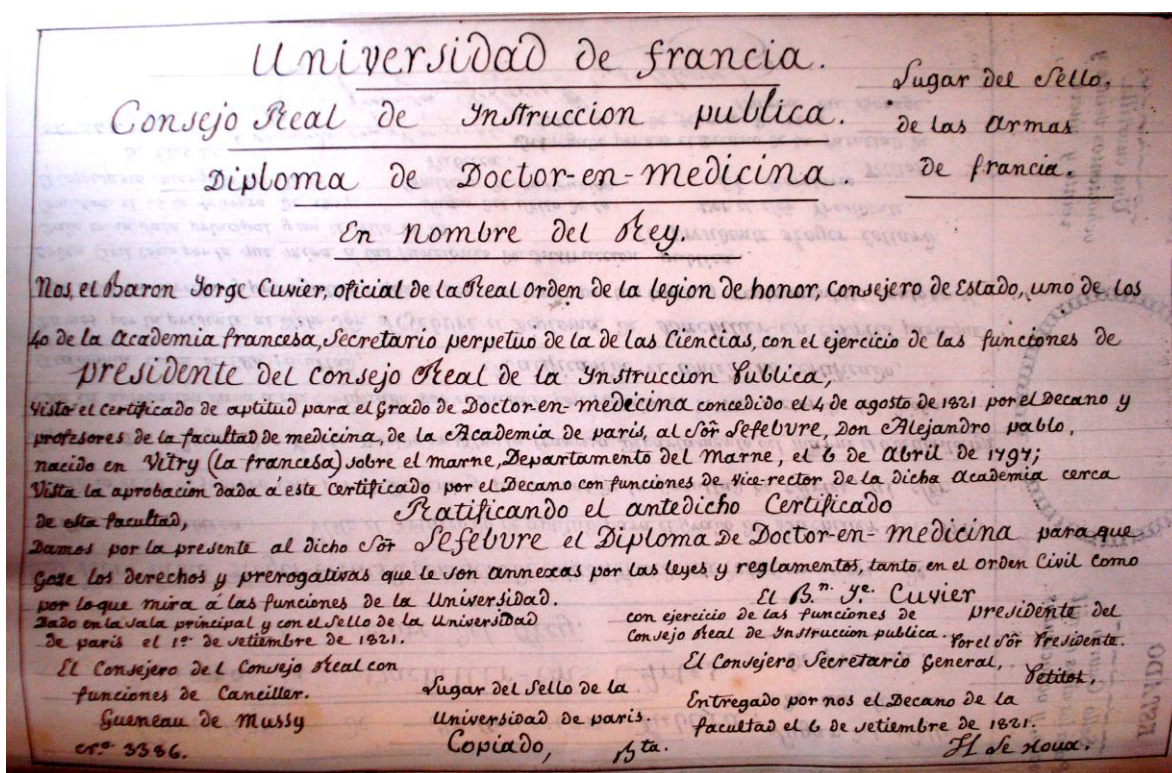 Universidad de francia.
Lugar del Sello.
Consejo Real de Instruccion publica.
de las armas
Diploma de Doctor-en-medicina.
de francia.
En nombre del Rey.
Nos, el Baron Jorge Cuvier, oficial de la Real orden de la legion de honor, Consejero de Estado, uno de los
40 de la Academia francesa, Secretario perpetuo de la de las Ciencias, con el ejercicio de las funciones de
presidente del consejo Real de la Instruccion Publica,
visto el certificado de aptitud para el grado de Doctor-en-medicina concedido el 4 de agosto de 1821 por el Decano y
profesores de la facultad de medicina, de la Academia de paris, al Sôr Lefebvre, Don Alejandro pablo,
nacido en Vitry (la francesa) sobre el marne, Departamento del Marne, el 6 de Abril de 1797;
Vista la aprobacion dada á este Certificado por el Decano con funciones de vice-rector de la dicha Academia cerca
de esta facultad,
Ratificando el antedicho Certificado
Damos por la presente al dicho Sôr Lefebvre el Diploma de Doctor-en-medicina para que
Goze los derechos y prerogativas que le son annexas por las leyes y reglamentos, tanto en el orden Civil como
por lo que mira á las funciones de la Universidad.
El B.n J.e Cuvier
Dado en la sala principal y con el Sello de la Universidad
con ejercicio de las funciones de presidente del
de paris el 1º de setiembre de 1821.
Consejo Real de Instruccion publica. Por el Sôr Presidente.
El Consejero del Consejo Real con
El Consejero Secretario General,
funciones de Canciller.
Lugar del Sello de la
Petitot,
Entregado por nos el Decano de la
Gueneau de Mussy
Universidad de paris.
facultad el 6 de setiembre de 1821.
nº 3386.
Copiado, Bta.